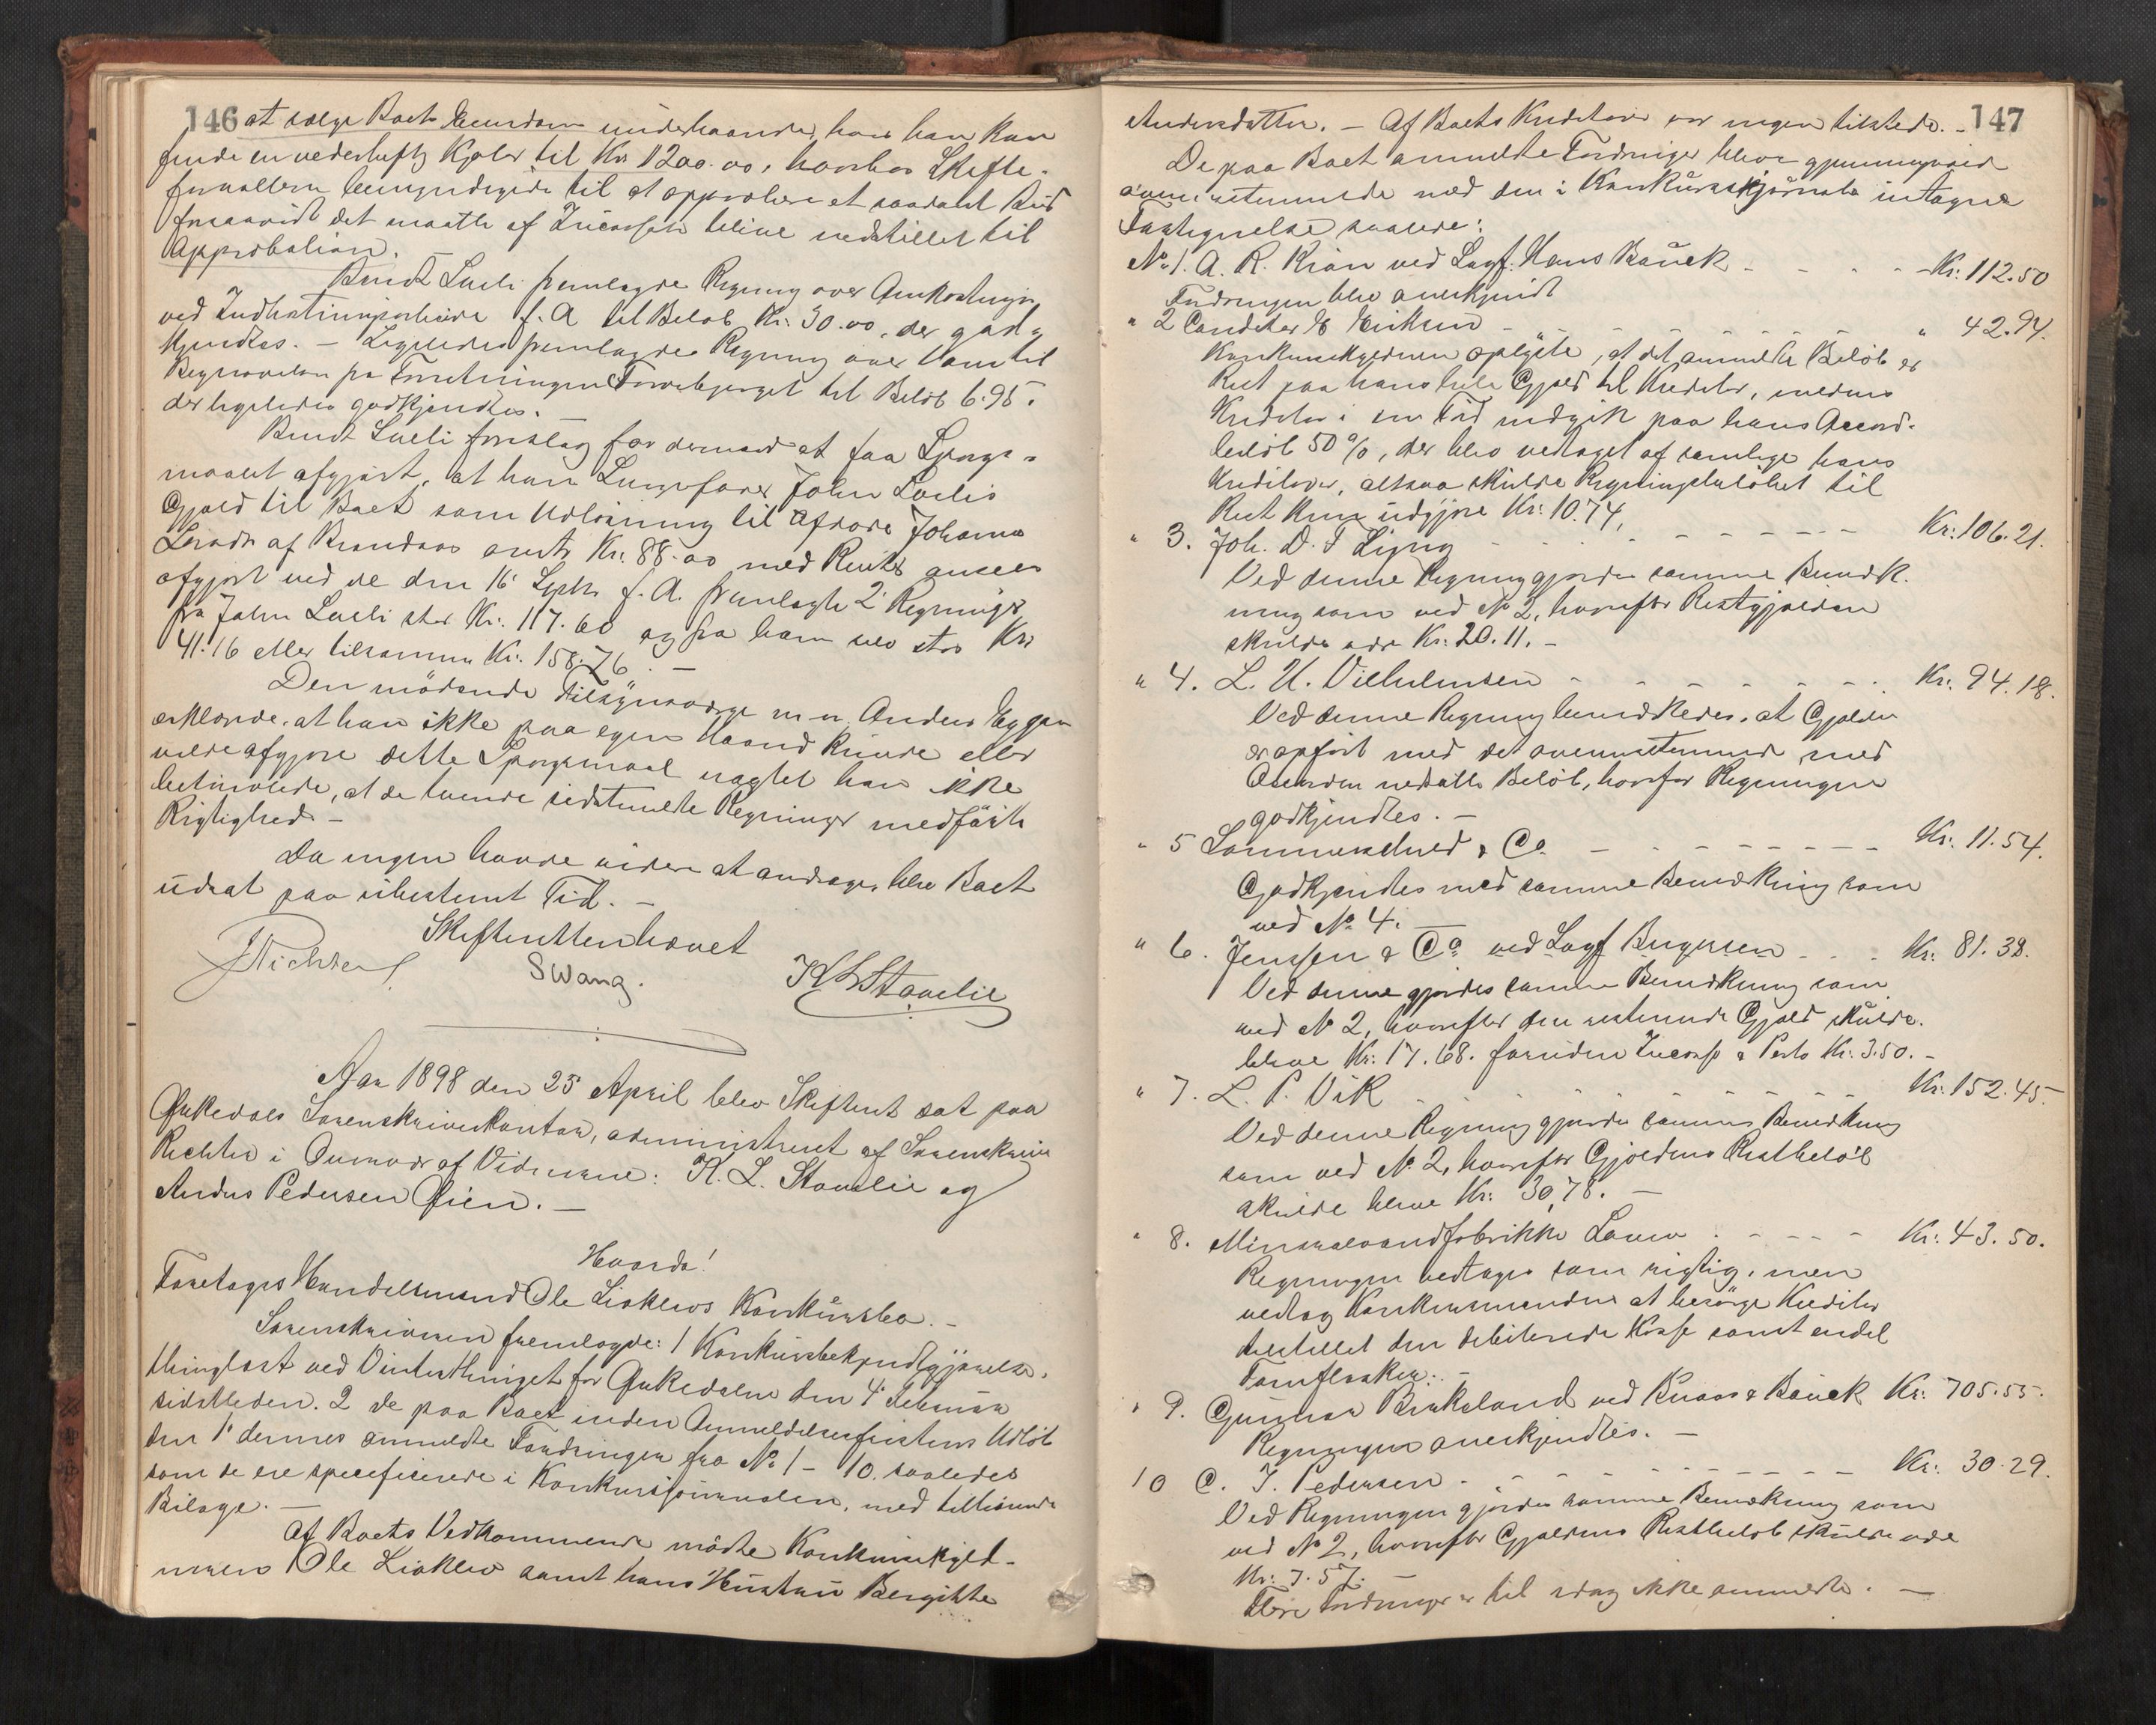 146 at sælge Boets Eiendom underhaanden, hvis han kan
finde en vederheftig Kjøber til Kr. 1200.00, hvorhos Skifte-
forvalteren bemyndigedes til at approbere et saadant Bud
forsaavidt det maatte af Incassator blive indstillet til
Approbation.
Bendt Loeli fremlagde Regning over Omkostninger
ved Indhøstningsarbeide f. A. til Beløb Kr. 30.00, der god-
kjendtes. — Ligeledes fremlagdes Regning over Varer til
Begravelsen fra Forretningen Torvebjerget til Beløb 6.95.
der ligeledes godkjendtes. —
Bendt Loeli foreslog for dermed at faa Spørgs-
maalet afgjort, at han Lungefarer John Loelis
Gjæld til Boet som Udløsning til afdøde Johanna
af Brandaas Kr. 88.00 med Renter ansees
afgjort ved de den 16' Septbr f. A. fremlagte 2' Regninger
fra John Loeli stor Kr. 117.60 og fra ham selv stor Kr.
41.16 eller tilsammen Kr. 158.76. —
Den mødende Tilsynsværge m. n. Anders Eggen
erklærede, at han ikke paa egen Haand kunde eller
vilde afgjøre dette Spørgsmaal uagtet han ikke
betvivlede, at de tvende sidstnævnte Regninger medførte
Rigtighed —
Da ingen havde videre at andrage, blev Boet
udsat paa ubestemt Tid. —
Skifteretten hævet
JRichter. SWang. K L Stavelie
Aar 1898 den 25' April blev Skifteret sat paa
Ørkedals Sorenskriverkontor, administreret af Sorenskriver
Richter i Overvær af Vidnerne: K. L. Stavelie og
Anders Pedersen Øien. —
Hvorda!
Foretoges Handelsmand Ole Lioklevs Konkursbo. —
Sorenskriveren fremlagde: 1 Konkursbekjendtgjørelse,
thinglæst ved Vinterthinget for Ørkedalen den 4' Februar
sidstleden. 2 de paa Boet inden Anmeldelsesfristens Udløb
den 1' dennes anmeldte Fordringer fra No 1 – 10. saaledes
som de ere specificerede i Konkursjournalen, med tilhørende
Bilage. —
Af Boets Vedkommende mødte Konkursskyld-
neren Ole Lioklev samt hans Hustru Bergitte
147
Andersdatter. — Af Boets Kreditorer var ingen tilstede. —
De paa Boet anmeldte Fordringer blev gjennemgaaede
overensstemmende med den i Konkursskjournalen intagne
Fortegnelse saalede:
No 1. A. R. Krøn ved Sagf. Hans Bauck - - - - Kr. 112.50
Fordringen blev anerkjendt
" 2 Canditer E Eriksen - - - - - - - " 42.94.
Konkursskyldneren oplyste, at det anmeldte Beløb er
Rest paa hans hele Gjæld til Kreditor, medens
Kreditor i sin Tid indgik paa hans Accord-
beløb 50 %, der blev vedtaget af samtlige hans
Kreditorer, altsaa skulde Regningsbeløbet til
Rest kun udgjøre Kr. 10.74.
" 3. Joh. D. S Ljung - - - - - - - Kr: 106.21.
Ved denne Regning gjordes samme Bemærk-
ning som ved No 2, hvorefter Restgjælden
skulde være Kr. 20.11. —
" 4. L. U. Vilhelmsen - - - - - - - Kr. 94.18.
Ved denne Regning bemærkedes, at Gjælden
er opført med det overensstemmende med
Accorden nedsatte Beløb, hvorfor Regningen
godkjendtes. —
" 5 Sommerschield & Co. - - - - - - - Kr. 11.54.
Godkjendtes med samme Bemærkning som
ved No 4. —
" 6. Jenssen & Co ved Sagf Birgersen - - - Kr. 81.38.
Ved denne gjordes samme Bemærkning som
ved No 2, hvorefter den resterende Gjæld skulde
blive Kr. 17.68. foruden Incasso & Porto Kr. 3.50. —
" 7. L. P. Vik - - - - - - - Kr. 152.45.
Ved denne Regning gjordes samme Bemærkning
som ved No 2, hvorefter Gjældens Restbeløb
skulde blive Kr. 30,78. —
" 8. Mineralvandfabrikken Lauv - - - - - Kr. 43.50.
Regningen vedtages som rigtig, men
vedtog Konkursmanden at besørge Kreditor
tilstillet den debiterede Kasse samt endel
Tomflasker. —
" 9. Gunnar Birkeland ved Knoss & Bauck Kr. 705.55.
Regningen anerkjendtes. —
10 C. J. Pedersen - - - - - - - - Kr. 30.29.
Ved Regningen gjordes samme Bemærkning som
ved No 2, hvorefter Gjældens Restbeløb skulde være
Kr. 7.57. —
Flere Fordringer er til idag ikke anmeldte. —